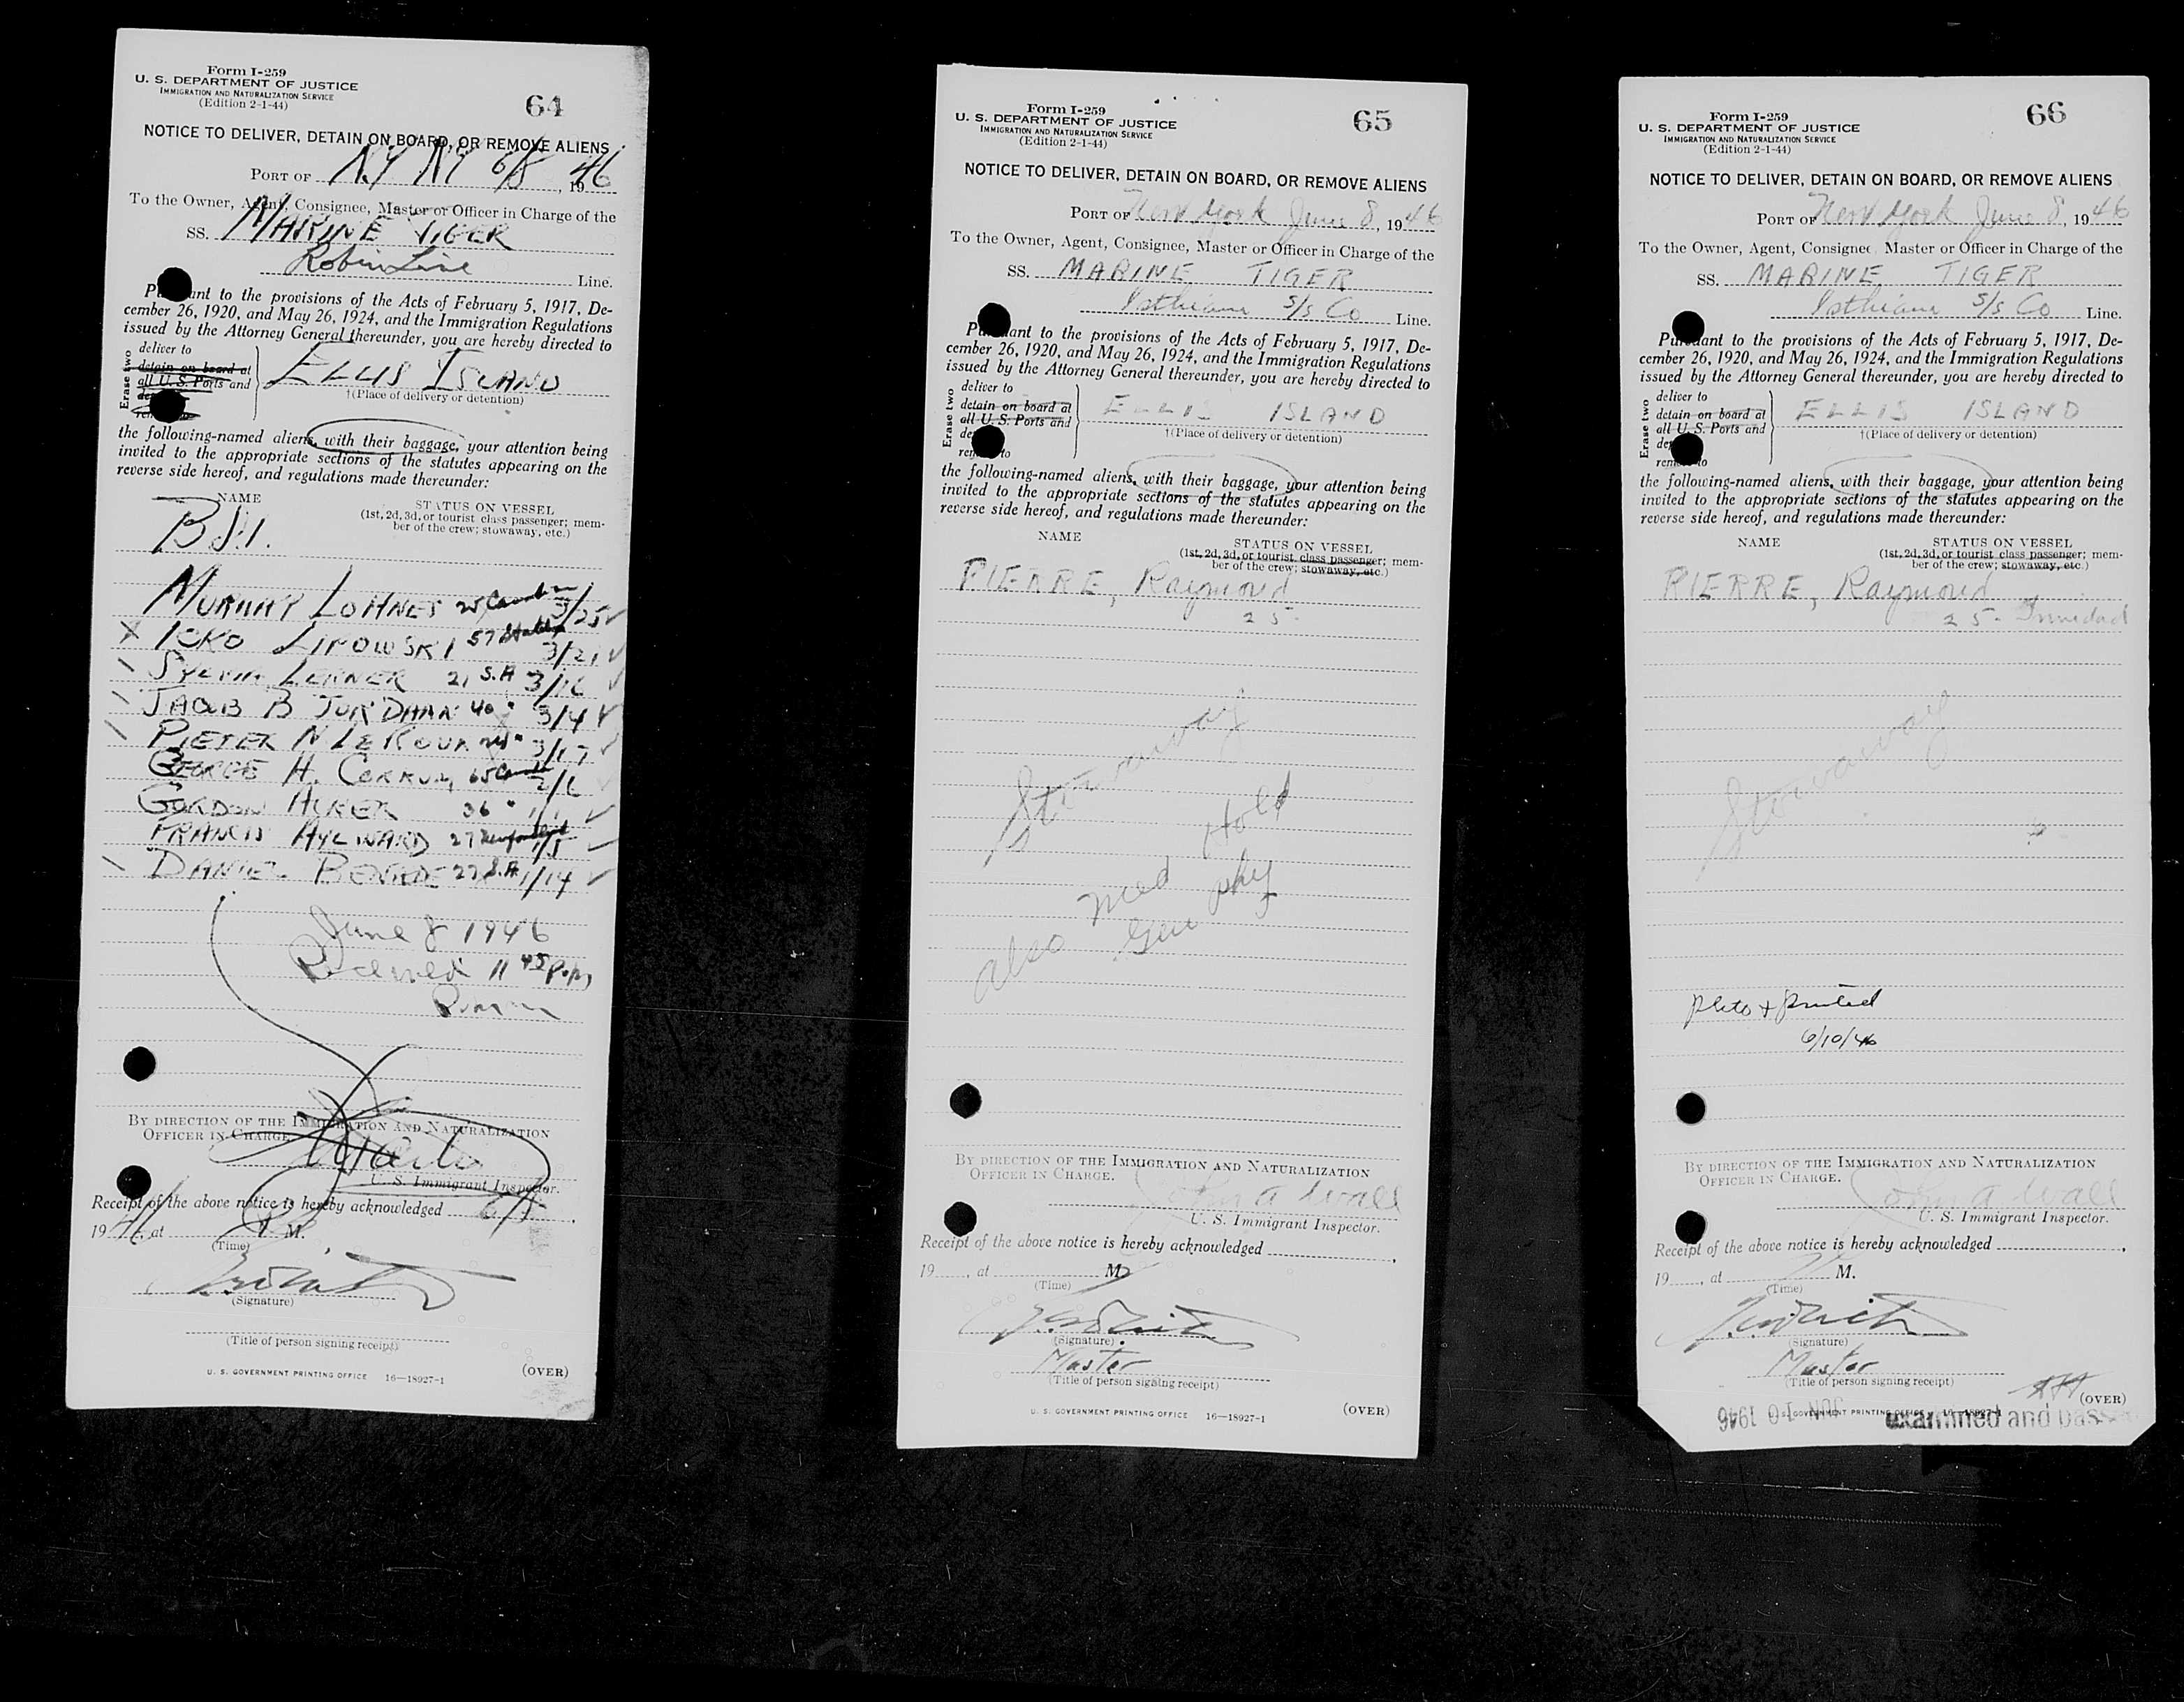 Form I-259
U. S. DEPARTMENT OF JUSTICE
IMMIGRATION AND NATURALIZATION SERVICE
(Edition 2-1-44)
64
NOTICE TO DELIVER, DETAIN ON BOARD, OR REMOVE ALIENS
PORT OF N.Y NY 6/8, 1946
To the Owner, Agent, Consignee, Master or Officer in Charge of the
SS. MARINE TIGER
Robin Line Line.
Pursuant to the provisions of the Acts of February 5, 1917, De-
cember 26, 1920, and May 26, 1924, and the Immigration Regulations
issued by the Attorney General thereunder, you are hereby directed to
Erase two
deliver to
detain on board at
all U. S. Ports and
ELLIS ISLAND
†(Place of delivery or detention)
the following-named aliens, with their baggage, your attention being
invited to the appropriate sections of the statutes appearing on the
reverse side hereof, and regulations made thereunder:
NAME
STATUS ON VESSEL
(1st, 2d, 3d, or tourist class passenger; mem-
ber of the crew; stowaway, etc.)
MURRAY LOHNES 25 3/25
ICKO LIPOWSKI 57 3/21
SYLVIA LERNER 21 S.A 3/16
JACOB B JORDAAN 40 " 3/4
PIETER N LE ROUX 24 " 3/17
GEORGE H. 65 2/6
GORDON ACKER 36 " 1/1
FRANCIS AYLWARD 27 1/5
DANIEL 27 S.A 1/14
June 8 1946
Received 11 45 P.m
BY DIRECTION OF THE IMMIGRATION AND NATURALIZATION
OFFICER IN CHARGE.
U. S. Immigrant Inspector.
Receipt of the above notice is hereby acknowledged 6/8,
1946, at P. M.
(Time)
(Signature)
(Title of person signing receipt)
U. S. GOVERNMENT PRINTING OFFICE 16—18927-1
(OVER)
Form I-259
U. S. DEPARTMENT OF JUSTICE
IMMIGRATION AND NATURALIZATION SERVICE
(Edition 2-1-44)
65
NOTICE TO DELIVER, DETAIN ON BOARD, OR REMOVE ALIENS
PORT OF New York June 8, 1946
To the Owner, Agent, Consignee, Master or Officer in Charge of the
SS. MARINE TIGER
Isthiam S/S Co Line.
Pursuant to the provisions of the Acts of February 5, 1917, De-
cember 26, 1920, and May 26, 1924, and the Immigration Regulations
issued by the Attorney General thereunder, you are hereby directed to
Erase two
deliver to
detain on board at
all U. S. Ports and
ELLIS ISLAND
†(Place of delivery or detention)
the following-named aliens, with their baggage, your attention being
invited to the appropriate sections of the statutes appearing on the
reverse side hereof, and regulations made thereunder:
NAME
STATUS ON VESSEL
(1st, 2d, 3d, or tourist class passenger; mem-
ber of the crew; stowaway, etc.)
PIERRE, Raymond
25-
Stowaway
Hold
also med
Gen phy
BY DIRECTION OF THE IMMIGRATION AND NATURALIZATION
OFFICER IN CHARGE.
John A Wall
U. S. Immigrant Inspector.
Receipt of the above notice is hereby acknowledged
19 , at M.
(Time)
(Signature)
Master
(Title of person signing receipt)
U. S. GOVERNMENT PRINTING OFFICE 16—18927-1
(OVER)
Form I-259
U. S. DEPARTMENT OF JUSTICE
IMMIGRATION AND NATURALIZATION SERVICE
(Edition 2-1-44)
66
NOTICE TO DELIVER, DETAIN ON BOARD, OR REMOVE ALIENS
PORT OF New York June 8, 1946
To the Owner, Agent, Consignee, Master or Officer in Charge of the
SS. MARINE TIGER
Isthiam S/S Co Line.
Pursuant to the provisions of the Acts of February 5, 1917, De-
cember 26, 1920, and May 26, 1924, and the Immigration Regulations
issued by the Attorney General thereunder, you are hereby directed to
Erase two
deliver to
detain on board at
all U. S. Ports and
ELLIS ISLAND
†(Place of delivery or detention)
the following-named aliens, with their baggage, your attention being
invited to the appropriate sections of the statutes appearing on the
reverse side hereof, and regulations made thereunder:
NAME
STATUS ON VESSEL
(1st, 2d, 3d, or tourist class passenger; mem-
ber of the crew; stowaway, etc.)
PIERRE, Raymond
25- Trinidad
Stowaway
Photo + Printed
6/10/46
BY DIRECTION OF THE IMMIGRATION AND NATURALIZATION
OFFICER IN CHARGE.
John A Wall
U. S. Immigrant Inspector.
Receipt of the above notice is hereby acknowledged
19 , at M.
(Time)
(Signature)
Master
(Title of person signing receipt)
(OVER)
JUN 10 1946
examined and